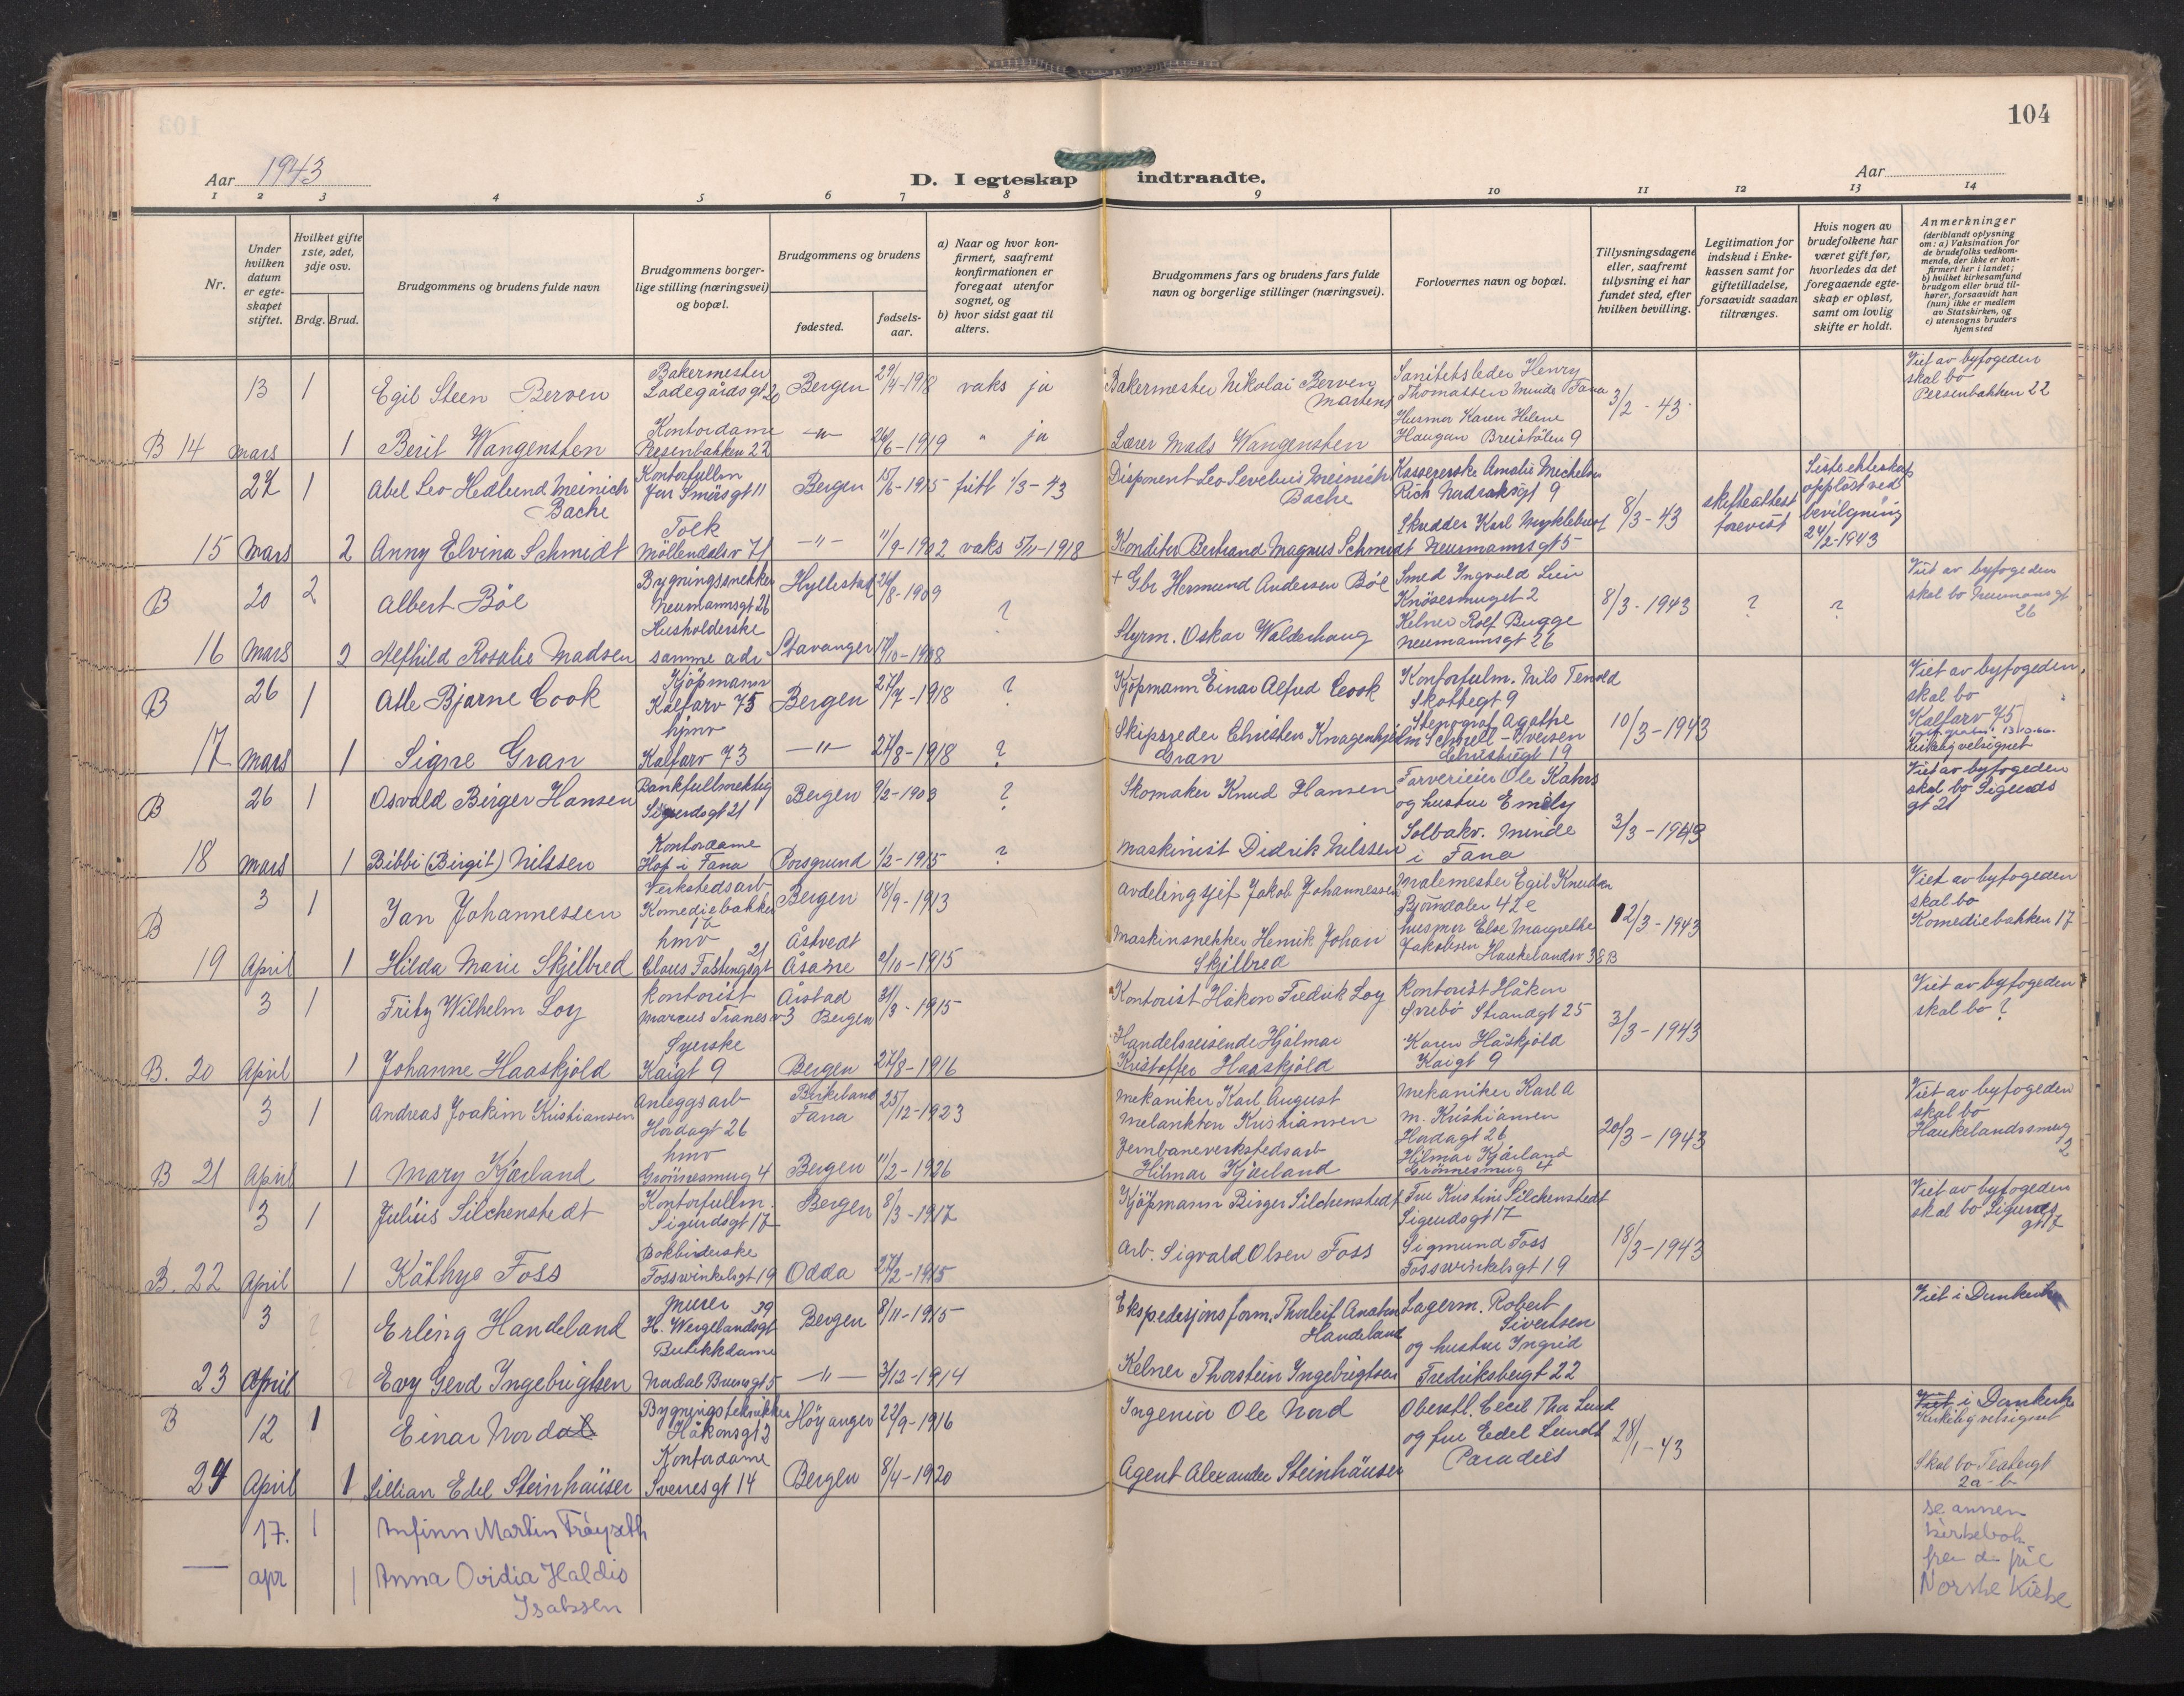 104
Aar 1943
D. I egteskap indtraadte.
Aar
1 2 3 4 5 6 7 8 9 10 11 12 13 14
Nr.
Under hvilken datum er egteskapet stiftet.
Hvilket gifte 1ste, 2det, 3dje osv.
Brdg. Brud.
Brudgommens og brudens fulde navn
Brudgommens borgerlige stilling (næringsvei) og bopæl.
Brudgommens og brudens
fødested.
fødselsaar.
a) Naar og hvor konfirmert, saafremt konfirmationen er foregaat utenfor sognet, og
b) hvor sidst gaat til alters.
Brudgommens fars og brudens fars fulde navn og borgerlige stillinger (næringsvei).
Forlovernes navn og bopæl.
Tillysningsdagene eller, saafremt tillysning ei har fundet sted, efter hvilken bevilling.
Legitimation for indskud i Enkekassen samt for giftetilladelse, forsaavidt saadan tiltrænges.
Hvis nogen av brudefolkene har været gift før, hvorledes da det foregaaende egteskap er opløst, samt om lovlig skifte er holdt.
Anmerkninger
(deriblandt oplysning om: a) Vaksination for de brudefolks vedkommende, der ikke er konfirmert her i landet; b) hvilket kirkesamfund brudgom eller brud tilhører, forsaavidt han (hun) ikke er medlem av Statskirken, og c) utensogns bruders hjemsted
13 1 Egil Steen Berven
Bakermester
Ladegårdsgt 20
Bergen 29/4-1918 vaks ja
Bakermester Nikolai Berven
Martens
Sanitetsleder Henry
Thomassen Minde Fana
3/2-43
Viet av byfogeden
skal bo
Persenbakken 22
B 14 mars 1 Berit Wangensten
Kontordame
Persenbakken 22
-"- 26/6-1919 " ja
Lærer Mads Wangensten
Husmor Karen Helene
Haugan Breistölen 9
27 1 Abel Leo Hedlund Meinich
Bache
Kontorfullm
Jon Smörsgt 11
Bergen 15/6-1915 fritt 1/3-43
Disponent Leo Severius Meinich
Bache
Kassererske Amalie Michelsen
Rich Nordraksgt 9
8/3-43
skifteattest
forevist
Siste ekteskap
oppløst ved
bevilgning
24/2-1943
15 Mars 2 Anny Elvina Schmidt
Tolk
Möllendalsv 71
-"- 11/9-1902 vaks 5/11-1918
Konditor Bertrand Magnus Schmidt
Skredder Karl Myklebust
Neumannsgt 5
B 20 2 Albert Böe
Bygningssnekker
Neumannsgt 26
Hyllestad 26/8-1909 ?
+ Gbr Hermund Andersen Böe
Smed Ingvald Lien
Knösesmuget 2
8/3-1943 ? ?
Viet av byfogeden
skal bo Neumansgt
26
16 Mars 2 Alfhild Rosalie Madsen
Husholderske
samme adr
Stavanger 17/10-1908
Styrm. Oskar Walderhaug
Kelner Rolf Bugge
Neumannsgt 26
B 26 1 Atle Bjarne Cook
Kjöpmann
Kalfarv 75
Bergen 27/7-1918 ?
Kjöpmann Einar Alfred Cook
Kontorfulm. Nils Tenold
Skottegt 9
10/3-1943
Viet av byfogeden
skal bo
Kalfarv 75
Kirkelig velsignet
17 Mars 1 Signe Gran
hjmv
Kalfarv 73
-"- 27/8-1918 ?
Skipsreder Christen Knagenhjelm
Gran
Stenograf Agathe
Schnell-Iversen
Christiesgt 19
B 26 1 Osvald Birger Hansen
Bankfullmektig
Sigurdsgt 21
Bergen 9/2-1903 ?
Skomaker Knud Hansen
Farverieier Ole Kahrs
og hustru Emily
Solbakv. Minde
i Fana
3/3-1943
Viet av byfogeden
skal bo Sigurds
gt 21
18 Mars 1 Bibbi (Birgit) Nilssen
Kontordame
Hop i Fana
Porsgrund 1/2-1915 ?
Maskinist Didrik Nilssen
B 3 1 Jan Johannessen
Verkstedsarb
Komediebakken
17
Bergen 18/9-1913
Avdelingsjef Jakob Johannessen
Malemester Egil Knudsen
Björndalen 42e
12/3-1943
Viet av byfogeden
skal bo
Komediebakken 17
19 April 1 Hilda Marie Skjelbred
hmv
21
Claus Fastingsgt
Åstvedt
Åsane 2/10-1915
Maskinsnekker Henrik Johan
Skjelbred
husmor Else Margrethe
Jakobsen Haukelandsv 38B
3 1 Fritz Wilhelm Loy
Kontorist
Marcus Tranesv 3
Årstad
Bergen 31/3-1915
Kontorist Håkon Fredrik Loy
Kontorist Håkon
Svebö Strandgt 25
3/3-1943
Viet av byfogeden
skal bo ?
B. 20 April 1 Johanne Haaskjold
Syerske
Kaigt 9
Bergen 27/8-1916
Handelsreisende Hjalmar
Kristoffer Haaskjold
Karen Håskjold
Kaigt 9
3 1 Andreas Joakim Kristiansen
Anleggsarb
Hordagt 26
Birkeland
Fana 25/12-1923
Mekaniker Karl August
Melankton Kristiansen
Mekaniker Karl A
M. Kristiansen
Hordagt 26
20/3-1943
Viet av byfogeden
skal bo
Haukelandssmug
2
B 21 April 1 Mary Kjærland
hmv
Grönnesmug 4
Bergen 11/2-1926
Jernbaneverkstedsarb
Hilmar Kjærland
Hilmar Kjærland
Grönnesmug 4
3 1 Julius Silchenstedt
Kontorfullm.
Sigurdsgt 17
Bergen 8/3-1917
Kjöpmann Birger Silchenstedt
Fru Kristine Silchenstedt
Sigurdsgt 17
18/3-1943
Viet av byfogeden
skal bo Sigurds
gt 17
B. 22 April 1 Käthye Foss
Bokbinderske
Fosswinkelsgt 19
Odda 27/2-1915
Arb. Sigvald Olsen Foss
Sigmund Foss
Fosswinkelsgt 19
3 ? Erling Handeland
Murer 39
H. Wergelandsgt
Bergen 8/11-1915
Ekspedisjonsform. Thorleif Anaton
Handeland
Lagerm. Robert
Sivertsen
og hustru Ingrid
Fredriksbergt 22
Viet i Domkirken
23 April ? Evy Gerd Ingebrigtsen
Butikkdame
Nadal Brunsgt 5
-"- 3/12-1914
Kelner Thorstein Ingebrigtsen
B 12 1 Einar Nordal
Bygningstekniker
Håkonsgt 2
Höyanger 22/9-1916
Ingeniör Ole Nord
Oberstl. Cecil Thu Lund
og frue Edel Lundt
Paradiis
28/1-43
Viet i Domkirken
Kirkelig velsignet
Skal bo Teatergt
2a-b
24 April 1 Lillian Edel Steinhäuser
Kontordame
Sverresgt 14
Bergen 8/4-1920
Agent Alexander Steinhäuser
17. 1 Anfinn Martin Tröyseth
— apr 1 Anna Ovidia Haldis
Isaksen
se annen
kirkebok
fra den frie
Norske Kirke